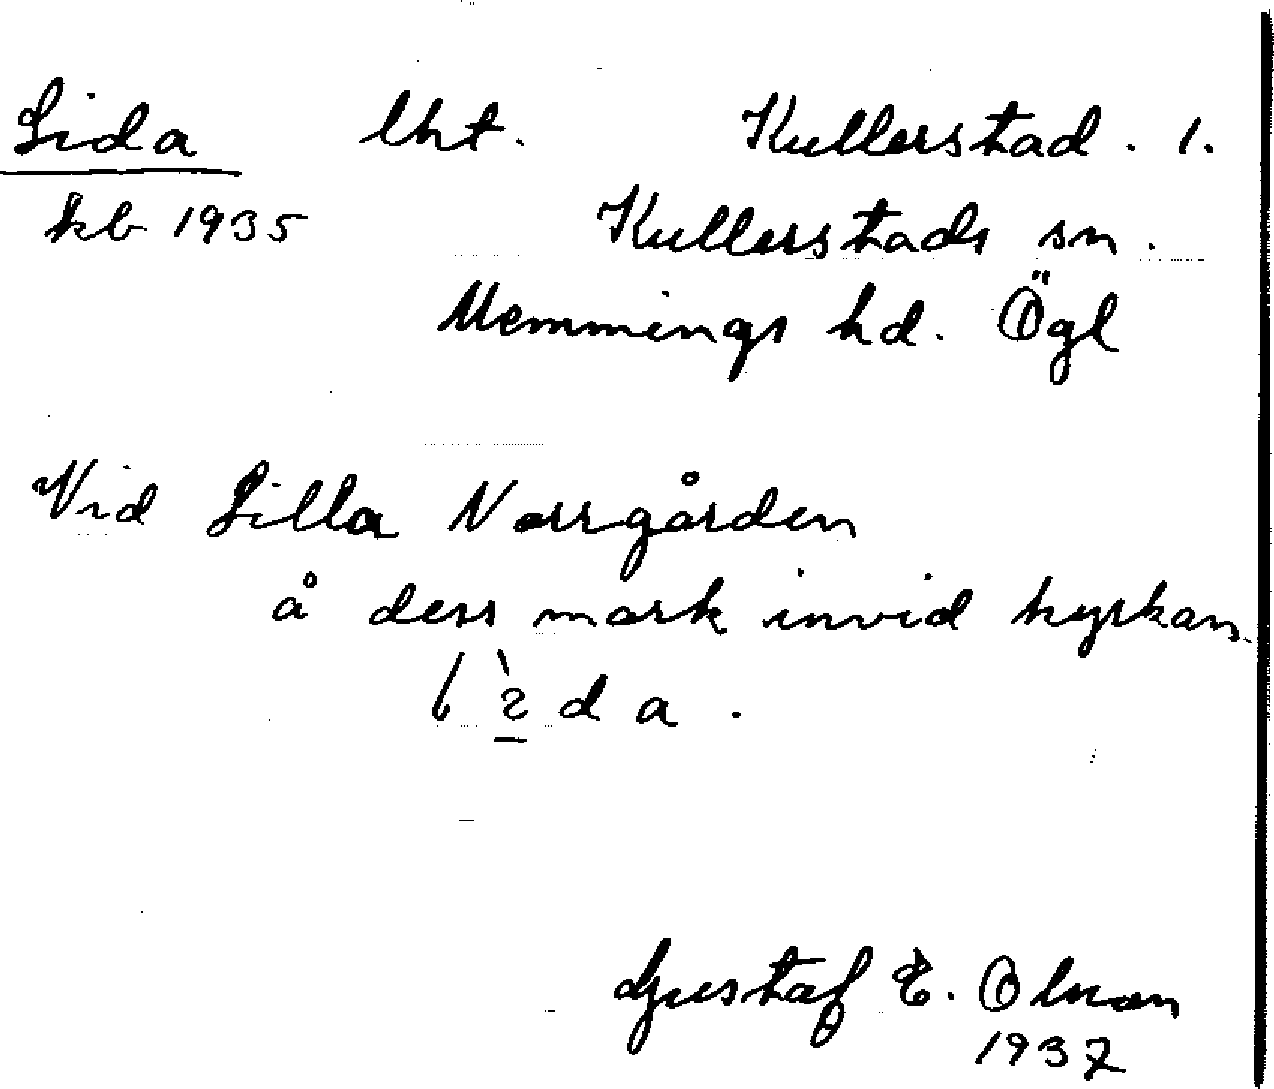 Lida lht. Kullerstad. 1.
kb 1935 Kullerstads sn.
Memmings hd. Ögl
Vid Lilla Norrgården
å dess mark invid kyrkan.
d a.
Gustaf E. Olson
1937